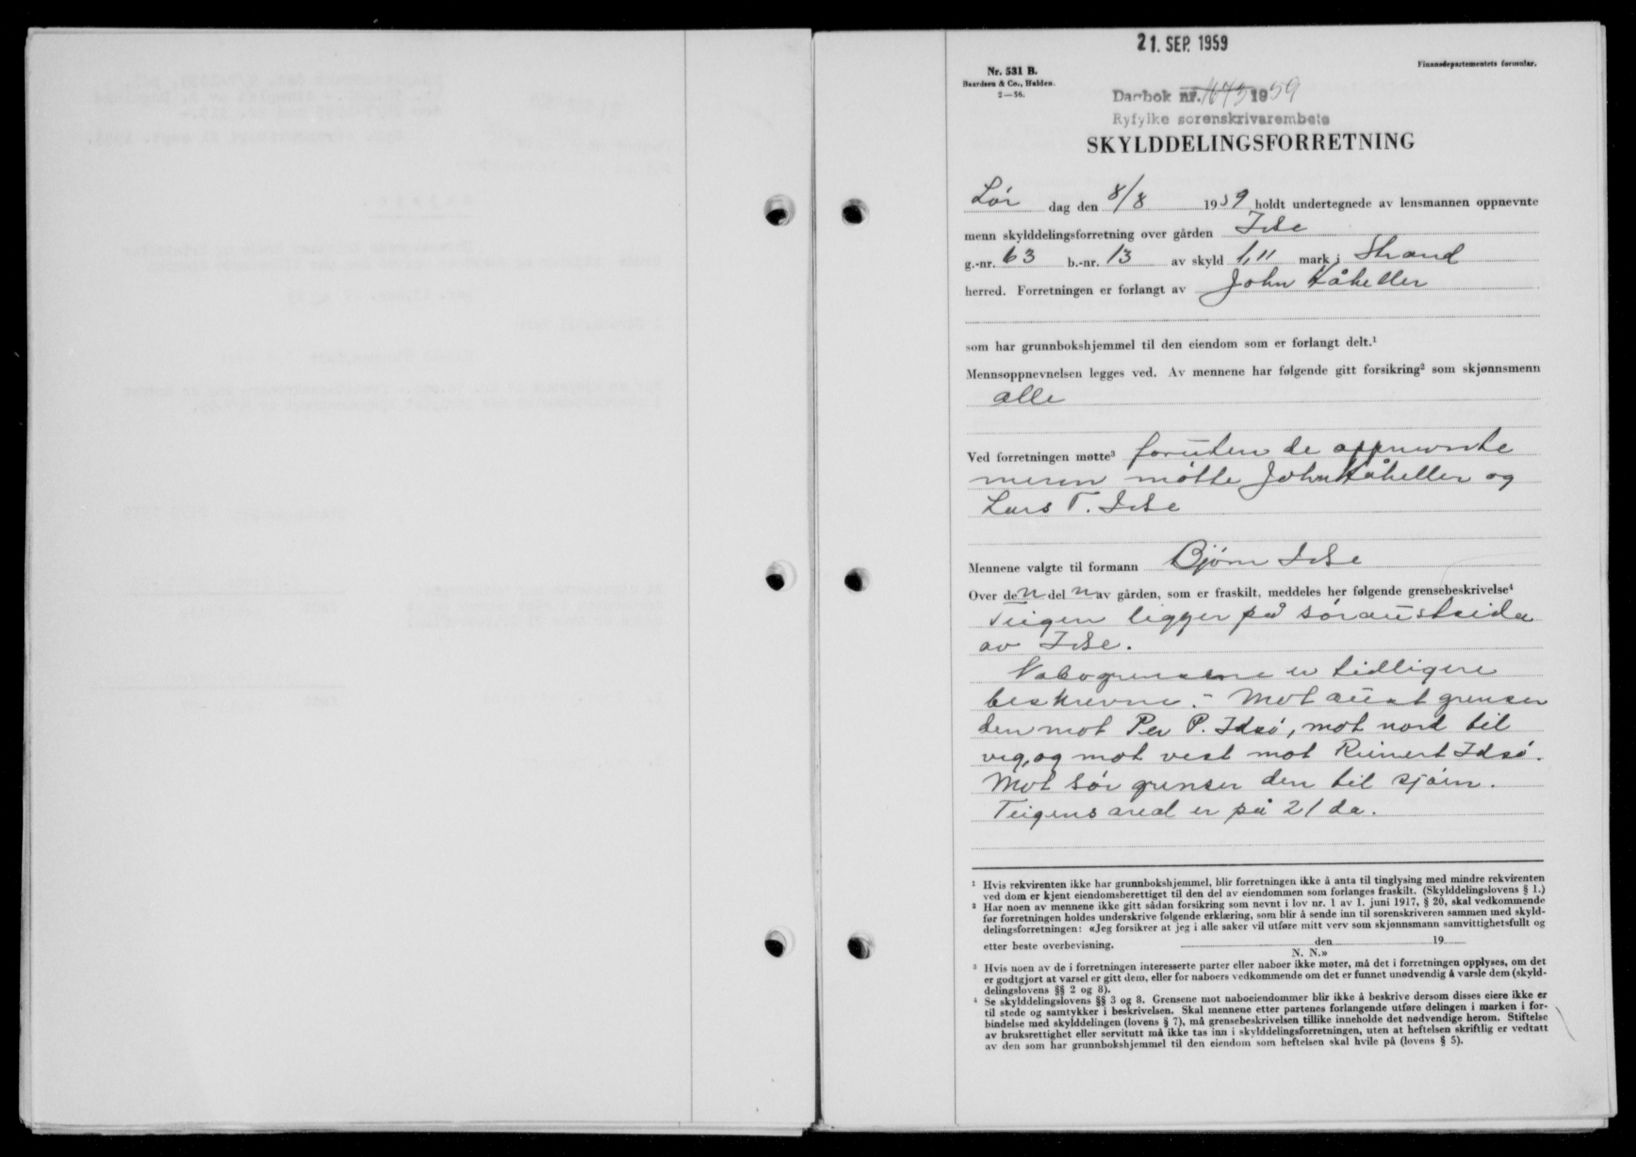 21. SEP. 1959
Nr. 531 B.
Baardsen & Co., Halden.
2—56.
Finansdepartementets formular.
Dagbok nr. 1643 1959
Ryfylke sorenskrivarembete
SKYLDDELINGSFORRETNING
Lør dag den 8/8 1959 holdt undertegnede av lensmannen oppnevnte
menn skylddelingsforretning over gården Idse
g.-nr. 63 b.-nr. 13 av skyld 1,11 mark i Strand
herred. Forretningen er forlangt av John Kåheller
som har grunnbokshjemmel til den eiendom som er forlangt delt.¹
Mennsoppnevnelsen legges ved. Av mennene har følgende gitt forsikring² som skjønnsmenn
alle
Ved forretningen møtte³ foruten de oppnevnte
menn møtte John Kåheller og
Lars T. Idse
Mennene valgte til formann Bjørn Idse
Over den del av gården, som er fraskilt, meddeles her følgende grensebeskrivelse⁴
Teigen ligger på søraustsida
av Idse.
Nabogrensene er tidligere
beskrevne. - Mot aust grenser
den mot Per P. Idsø, mot nord til
veg, og mot vest mot Reinert Idsø.
Mot sør grenser den til sjøen.
Teigens areal er på 21 da.
¹ Hvis rekvirenten ikke har grunnbokshjemmel, blir forretningen ikke å anta til tinglysing med mindre rekvirenten
ved dom er kjent eiendomsberettiget til den del av eiendommen som forlanges fraskilt. (Skylddelingslovens § 1.)
² Har noen av mennene ikke gitt sådan forsikring som nevnt i lov nr. 1 av 1. juni 1917, § 20, skal vedkommende
før forretningen holdes underskrive følgende erklæring, som blir å sende inn til sorenskriveren sammen med skyld-
delingsforretningen: «Jeg forsikrer at jeg i alle saker vil utføre mitt verv som skjønnsmann samvittighetsfullt og
etter beste overbevisning. den 19
N. N.»
³ Hvis noen av de i forretningen interesserte parter eller naboer ikke møter, må det i forretningen opplyses, om det
er godtgjort at varsel er gitt dem, eller for naboers vedkommende om det er funnet unødvendig å varsle dem (skyld-
delingslovens §§ 2 og 8).
⁴ Se skylddelingslovens §§ 3 og 8. Grensene mot naboeiendommer blir ikke å beskrive dersom disses eiere ikke er
til stede og samtykker i beskrivelsen. Skal mennene etter partenes forlangende utføre delingen i marken i for-
bindelse med skylddelingen (lovens § 7), må grensebeskrivelsen tillike inneholde det nødvendige herom. Stiftelse
av bruksrettighet eller servitutt må ikke tas inn i skylddelingsforretningen, uten at heftelsen skriftlig er vedtatt
av den som har grunnbokshjemmel til den eiendom som heftelsen skal hvile på (lovens § 5).